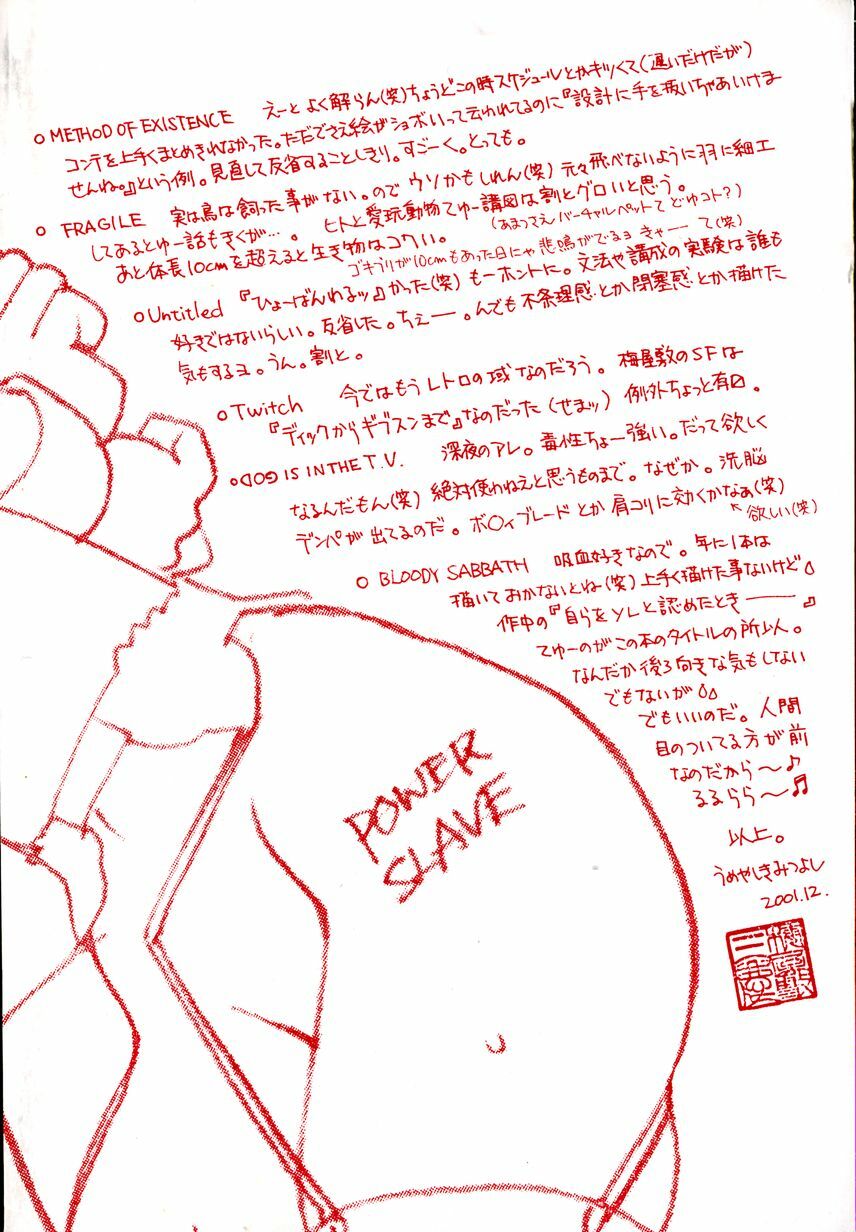 ○METHOD OF EXISTENCE えーと よく解らん(笑)ちょうどこの時スケジュールとかキツくて(遅いだけだが)
コンテを上手くまとめきれなかった。ただでさえ絵がショボいって云われてるのに『設計に手を抜いちゃあいけま
せんね。』という例。見直して反省することしきり。すごーく。とっても。
○ FRAGILE 実は鳥は飼った事がない。ので ウソかもしれん(笑) 元々飛べないように羽に細工
してあるとゆー話もきくが…。 ヒトと愛玩動物てゆー講図は割とグロいと思う。
(あまつさえバーチャルペットて どゆコト?)
あと体長10cmを超えると生き物はコワい。
ゴキブリが10cmもあった日にゃ 悲鳴がでるョ きゃー て(笑)
○Untitled 『ひょーばんわるッ』かった(笑)もーホントに。文法や講成の実験は誰も
好きではないらしい。反省した。ちぇー。んでも不条理感とか閉塞感とか描けた
気もするョ。うん。割と。
○Twitch 今ではもうレトロの域なのだろう。梅屋敷のSFは
『ディックからギブスンまで』なのだった(せまッ) 例外ちょっと有り。
○DOG IS IN THE T.V. 深夜のアレ。毒性ちょー強い。だって欲しく
なるんだもん(笑) 絶対使わねえと思うものまで。なぜか。洗脳
デンパが出てるのだ。ボ○ィブレードとか肩コリに効くかなあ(笑)
↖欲しい(笑)
○ BLOODY SABBATH 吸血好きなので。年に1本は
描いておかないとね(笑)上手く描けた事ないけど
作中の『自らをソレと認めたとき――』
てゆーのがこの本のタイトルの所以。
なんだか後ろ向きな気もしない
でもないが
でもいいのだ。人間
目のついてる方が前
なのだから〜♪
るるらら〜♬
以上。
うめやしきみつよし
2001.12.
POWER
SLAVE